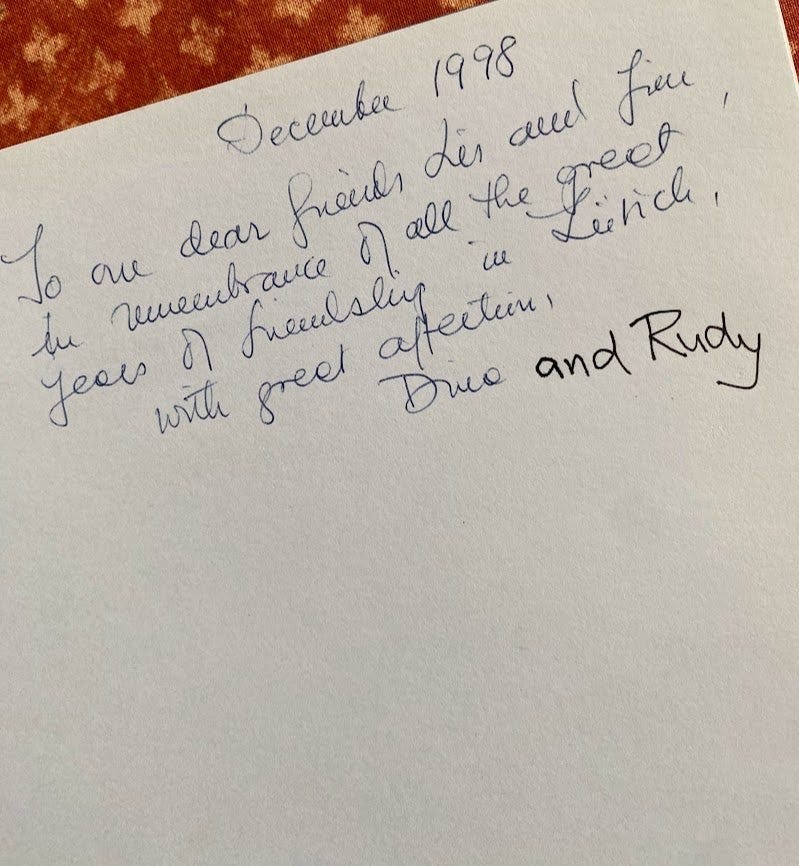 December 1998
To our dear friends Lis and Jim,
In remembrance of all the great
years of friendship in Zürich,
with great affection,
Dino and Rudy